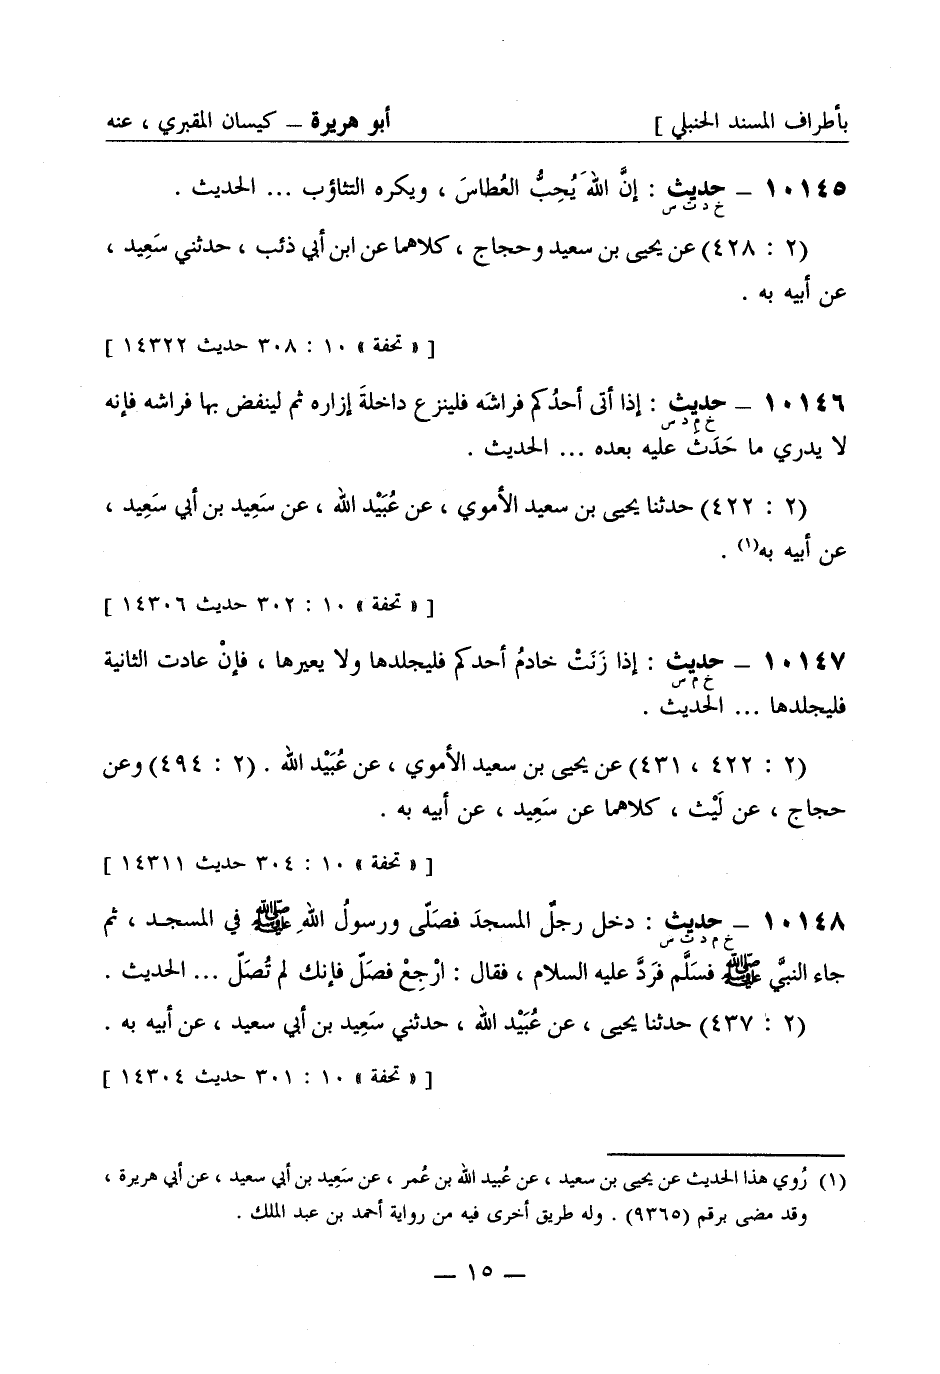 بأطراف المسند الحنبلي ] أبو هريرة ــ كيسان المقبري ، عنه
١٠١٤٥ ــ حديث : إنَّ اللهَ يُحِبُّ العُطاسَ ، ويكره التثاؤب ... الحديث .
خ د ت س
(٢ : ٤٢٨) عن يحيى بن سعيد وحجاج ، كلاهما عن ابن أبي ذئب ، حدثني سَعِيد ،
عن أبيه به .
[ « تحفة » ١٠ : ٣٠٨ حديث ١٤٣٢٢ ]
١٠١٤٦ ــ حديث : إذا أتى أحدُكم فراشَه فلينزع داخلةَ إزاره ثم لينفض بها فراشه فإنه
خ م د س
لا يدري ما حَدَثَ عليه بعده ... الحديث .
(٢ : ٤٢٢) حدثنا يحيى بن سعيد الأموي ، عن عُبَيْد الله ، عن سَعِيد بن أبي سَعِيد ،
عن أبيه به(١) .
[ « تحفة » ١٠ : ٣٠٢ حديث ١٤٣٠٦ ]
١٠١٤٧ ــ حديث : إذا زَنَتْ خادمُ أحدكم فليجلدها ولا يعيرها ، فإنْ عادت الثانية
خ م س
فليجلدها ... الحديث .
(٢ : ٤٢٢ ، ٤٣١) عن يحيى بن سعيد الأموي ، عن عُبَيْد الله . (٢ : ٤٩٤) وعن
حجاج ، عن لَيْث ، كلاهما عن سَعِيد ، عن أبيه به .
[ « تحفة » ١٠ : ٣٠٤ حديث ١٤٣١١ ]
١٠١٤٨ ــ حديث : دخل رجلٌ المسجدَ فصَلّى ورسولُ اللهِ ﷺ في المسجد ، ثم
خ م د ت س
جاء النبيَّ ﷺ فسَلَّم فرَدَّ عليه السلام ، فقال : ارْجِعْ فصَلّ فإنك لم تُصَلّ ... الحديث .
(٢ : ٤٣٧) حدثنا يحيى ، عن عُبَيْد الله ، حدثني سَعِيد بن أبي سعيد ، عن أبيه به .
[ « تحفة » ١٠ : ٣٠١ حديث ١٤٣٠٤ ]
(١) رُوي هذا الحديث عن يحيى بن سعيد ، عن عُبيد الله بن عُمر ، عن سَعِيد بن أبي سعيد ، عن أبي هريرة ،
وقد مضى برقم (٩٣٦٥) . وله طريق أخرى فيه من رواية أحمد بن عبد الملك .
ــ ١٥ ــ